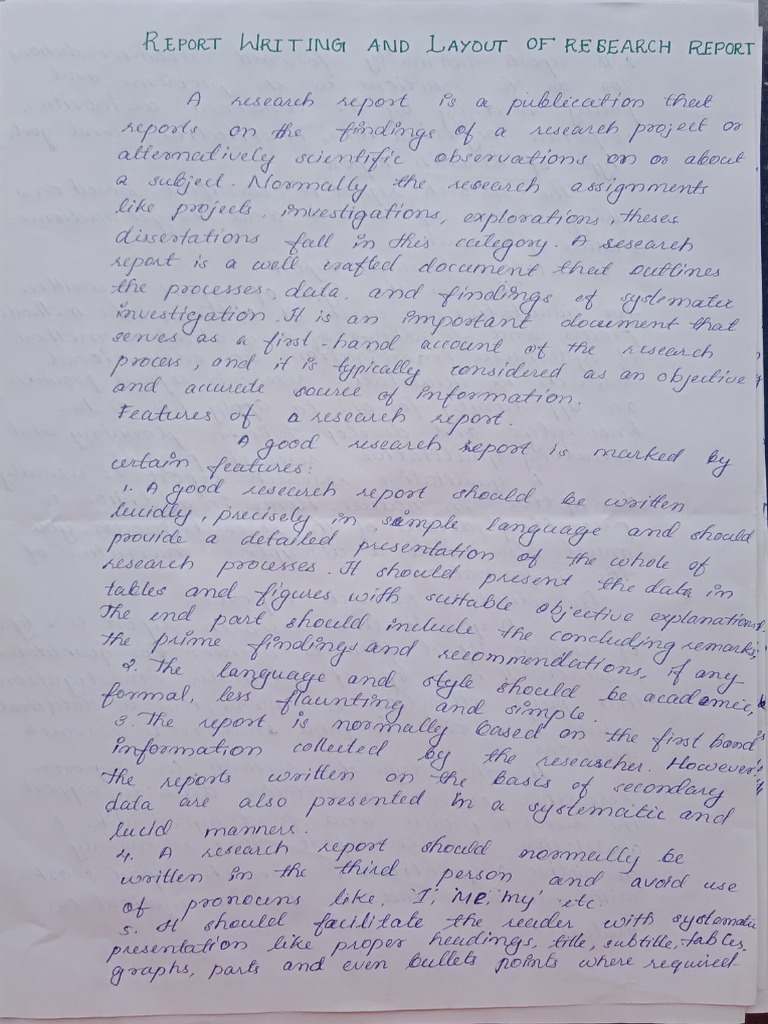 REPORT WRITING AND LAYOUT OF RESEARCH REPORT
A research report is a publication that
reports on the findings of a research project or
alternatively scientific observations on or about
a subject. Normally the research assignments
like projects, investigations, explorations, theses
dissertations fall in this category. A research
report is a well crafted document that outlines
the processes, data, and findings of systematic
investigation. It is an important document that
serves as a first-hand account of the research
process, and it is typically considered as an objective
and accurate source of information.
Features of a research report.
A good research report is marked by
certain features:
1. A good research report should be written
lucidly, precisely in simple language and should
provide a detailed presentation of the whole of
research processes. It should present the data in
tables and figures with suitable objective explanations.
The end part should include the concluding remarks,
the prime findings and recommendations, if any
2. The language and style should be academic,
formal, less flaunting and simple.
3. The report is normally based on the first hand
information collected by the researcher. However,
the reports written on the basis of secondary
data are also presented in a systematic and
lucid manners.
4. A research report should normally be
written in the third person and avoid use
of pronouns like, 'I, 'me,' my' etc.
5. It should facilitate the reader with systematic
presentation like proper headings, title, subtitle, tables,
graphs, parts and even bullets points where required